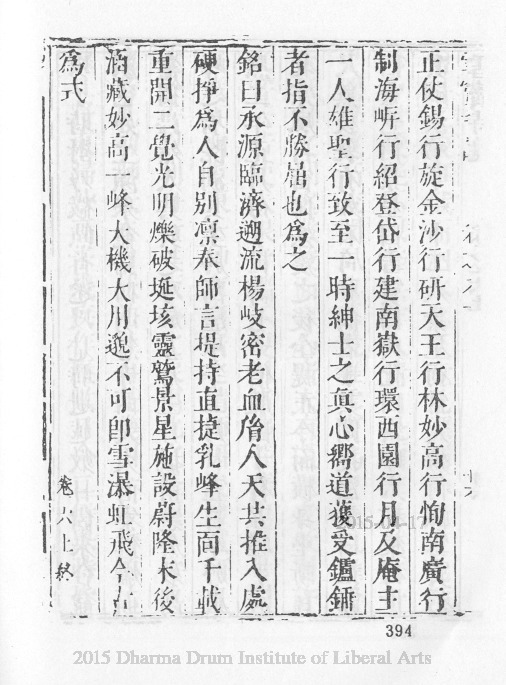 正仗錫行旋金沙行研天王行林妙高行恂南廣行
制海㟁行紹登岱行建南嶽行環西園行月及庵主
一人雄聖行致至一時紳士之眞心嚮道獲受鑪錘
者指不勝屈也爲之
銘曰承源臨濟遡流楊岐密老血脩人天共推入處
硬掙爲人自别凛奉師言堤持直捷乳峰生面千載
重開二覺光明爍破垓靈鷲景星施設蔚隆末後
涵藏妙高一峰大機大用邈不可卽雪瀑虹飛今古
爲式
卷六上終
394
2015-04-17
2015 Dharma Drum Institute of Liberal Arts